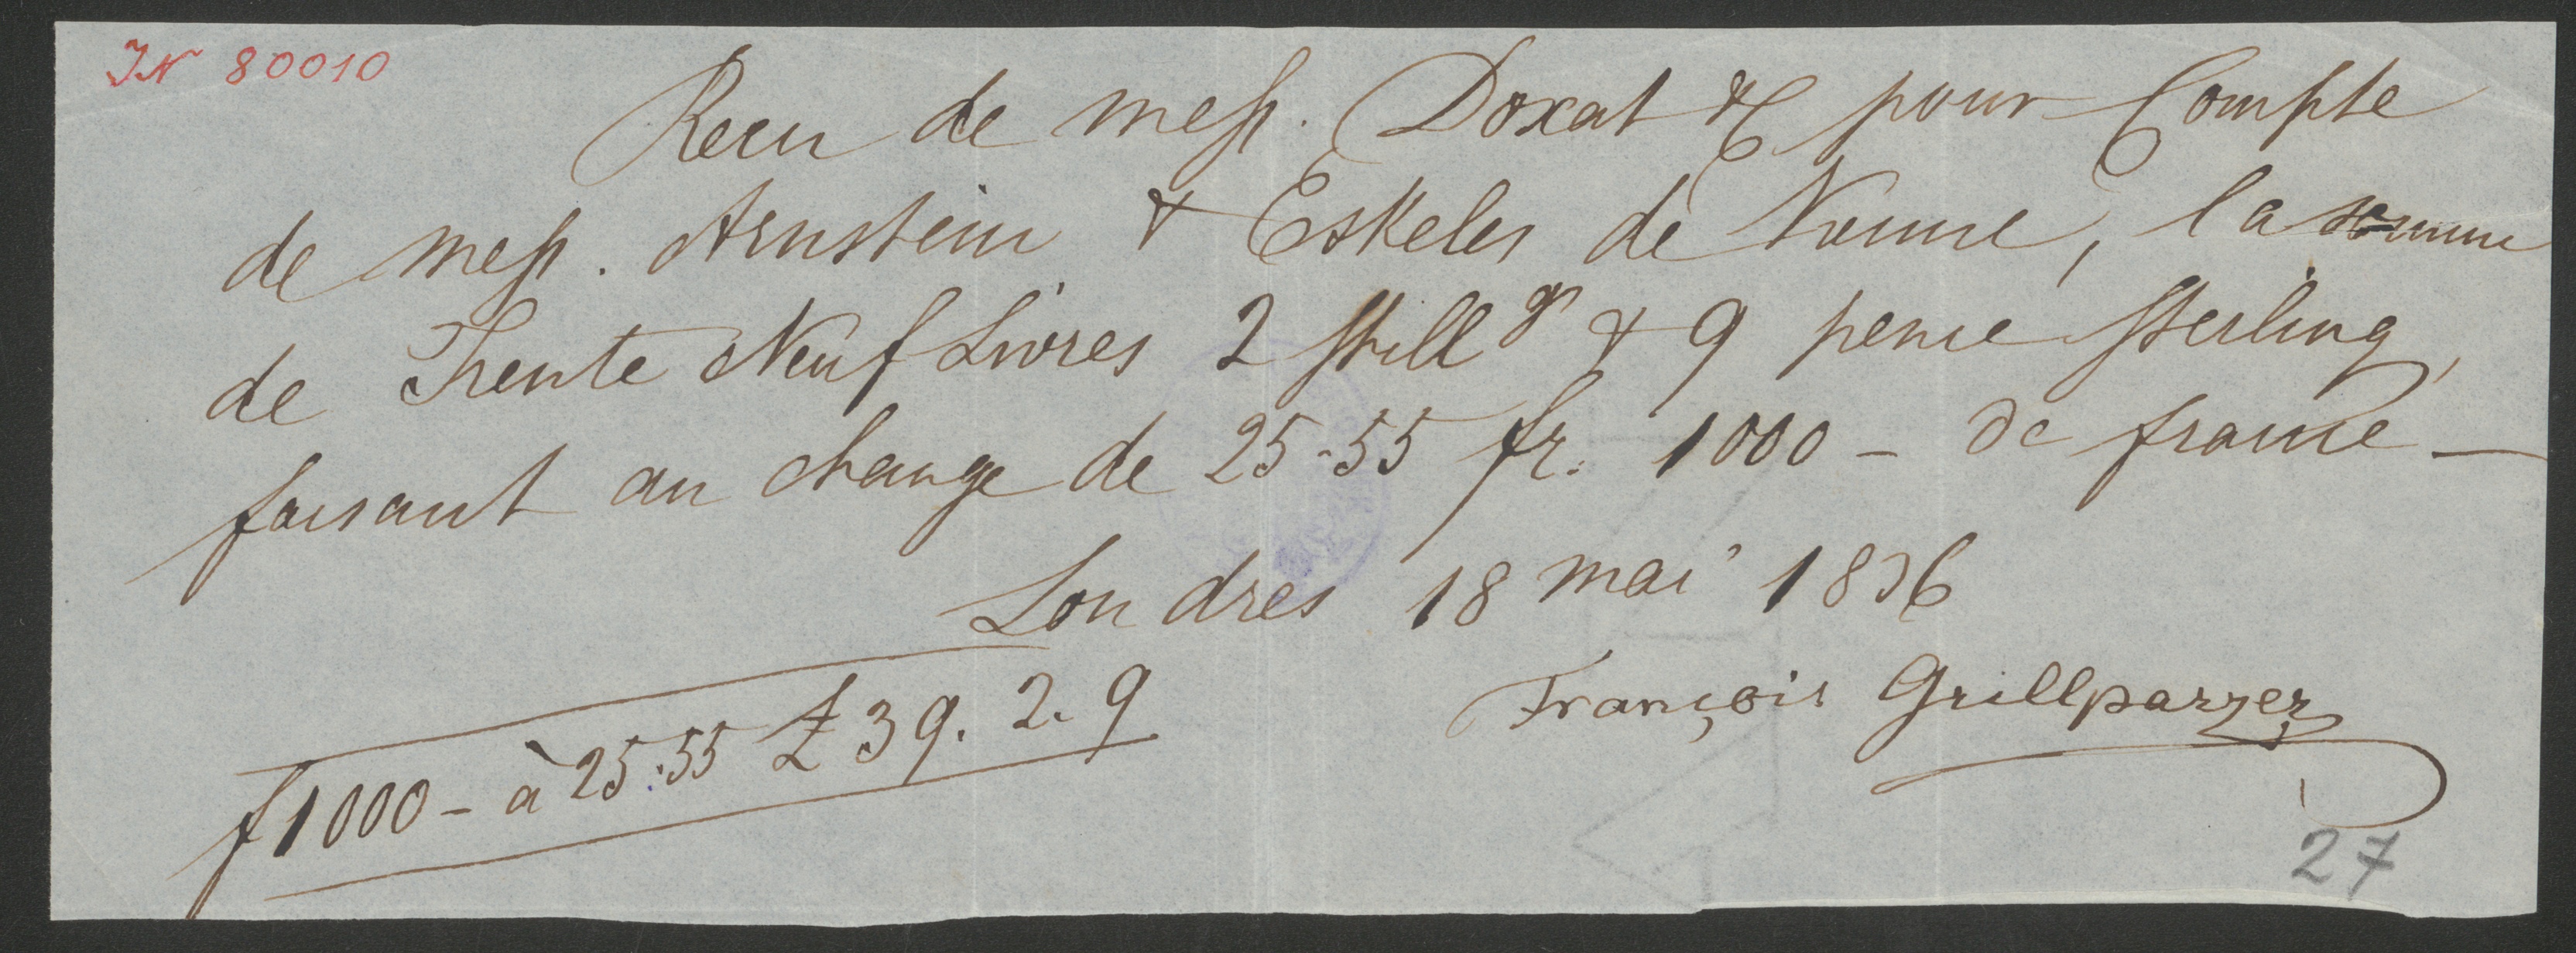 IN 80010
Recu de mess. Doxat & C pour Compte
de mess. Arnstein & Eskeles de Vienne, la somme
de Trente Neuf Livres 2 Shill gs & 9 pence Sterling,
faisant au change de 25-55 fr. 1000 - de france —
Londres 18 mai 1836
François Grillparzer
f 1000 - à 25:55 £ 39. 2. 9
27